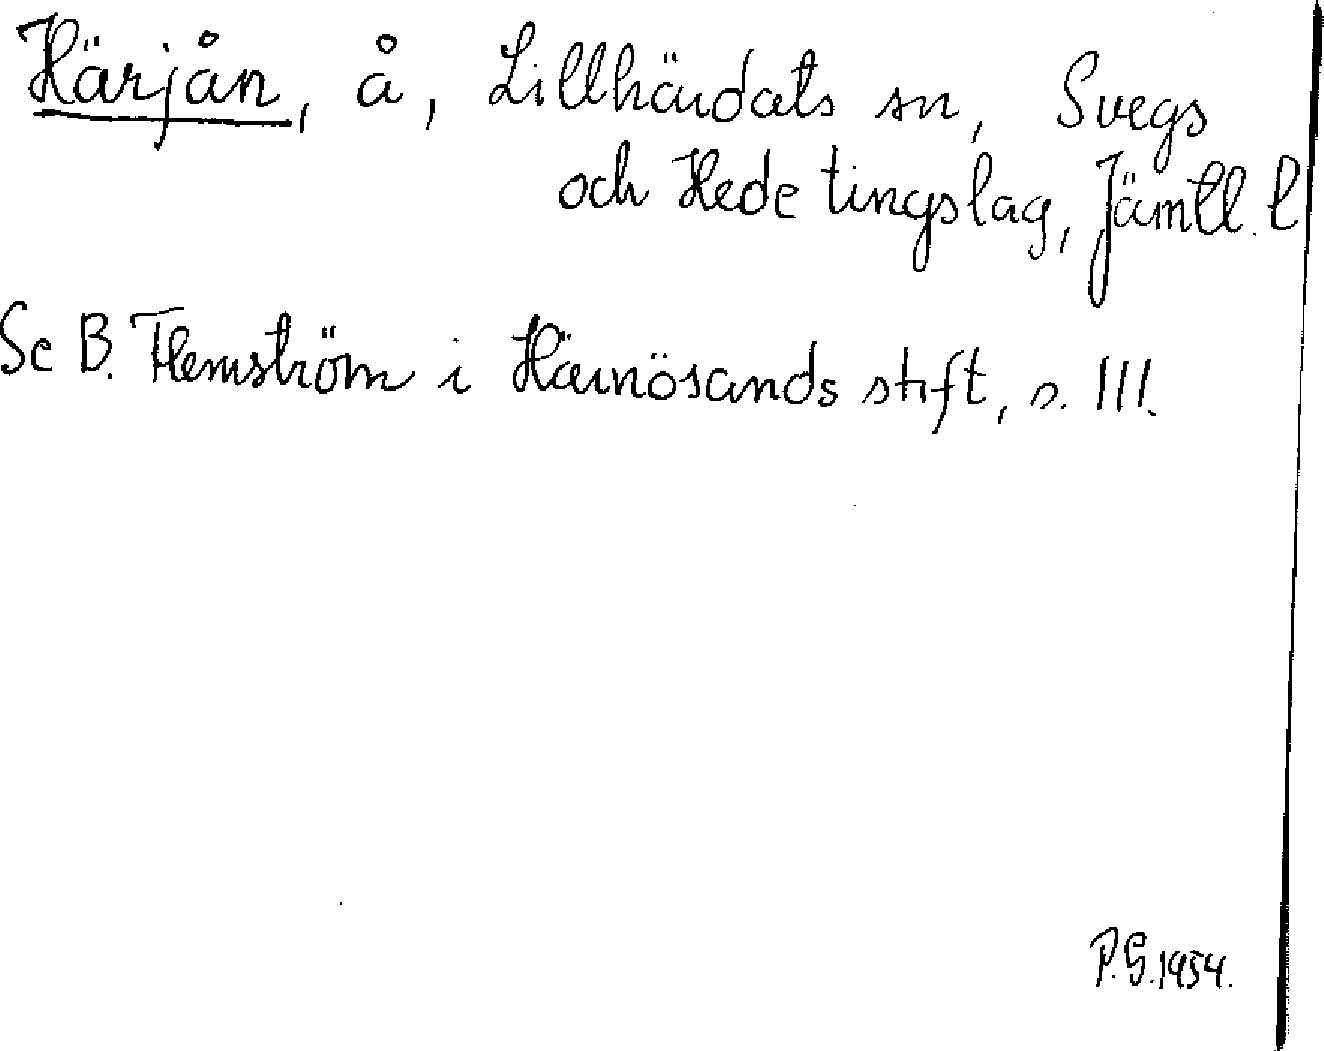 Härjån, å, Lillhärdals sn, Svegs
och Hede tingslag, Jämtl. l
Se B. Flemström i Härnösands stift, s. 111.
P.S. 1954.